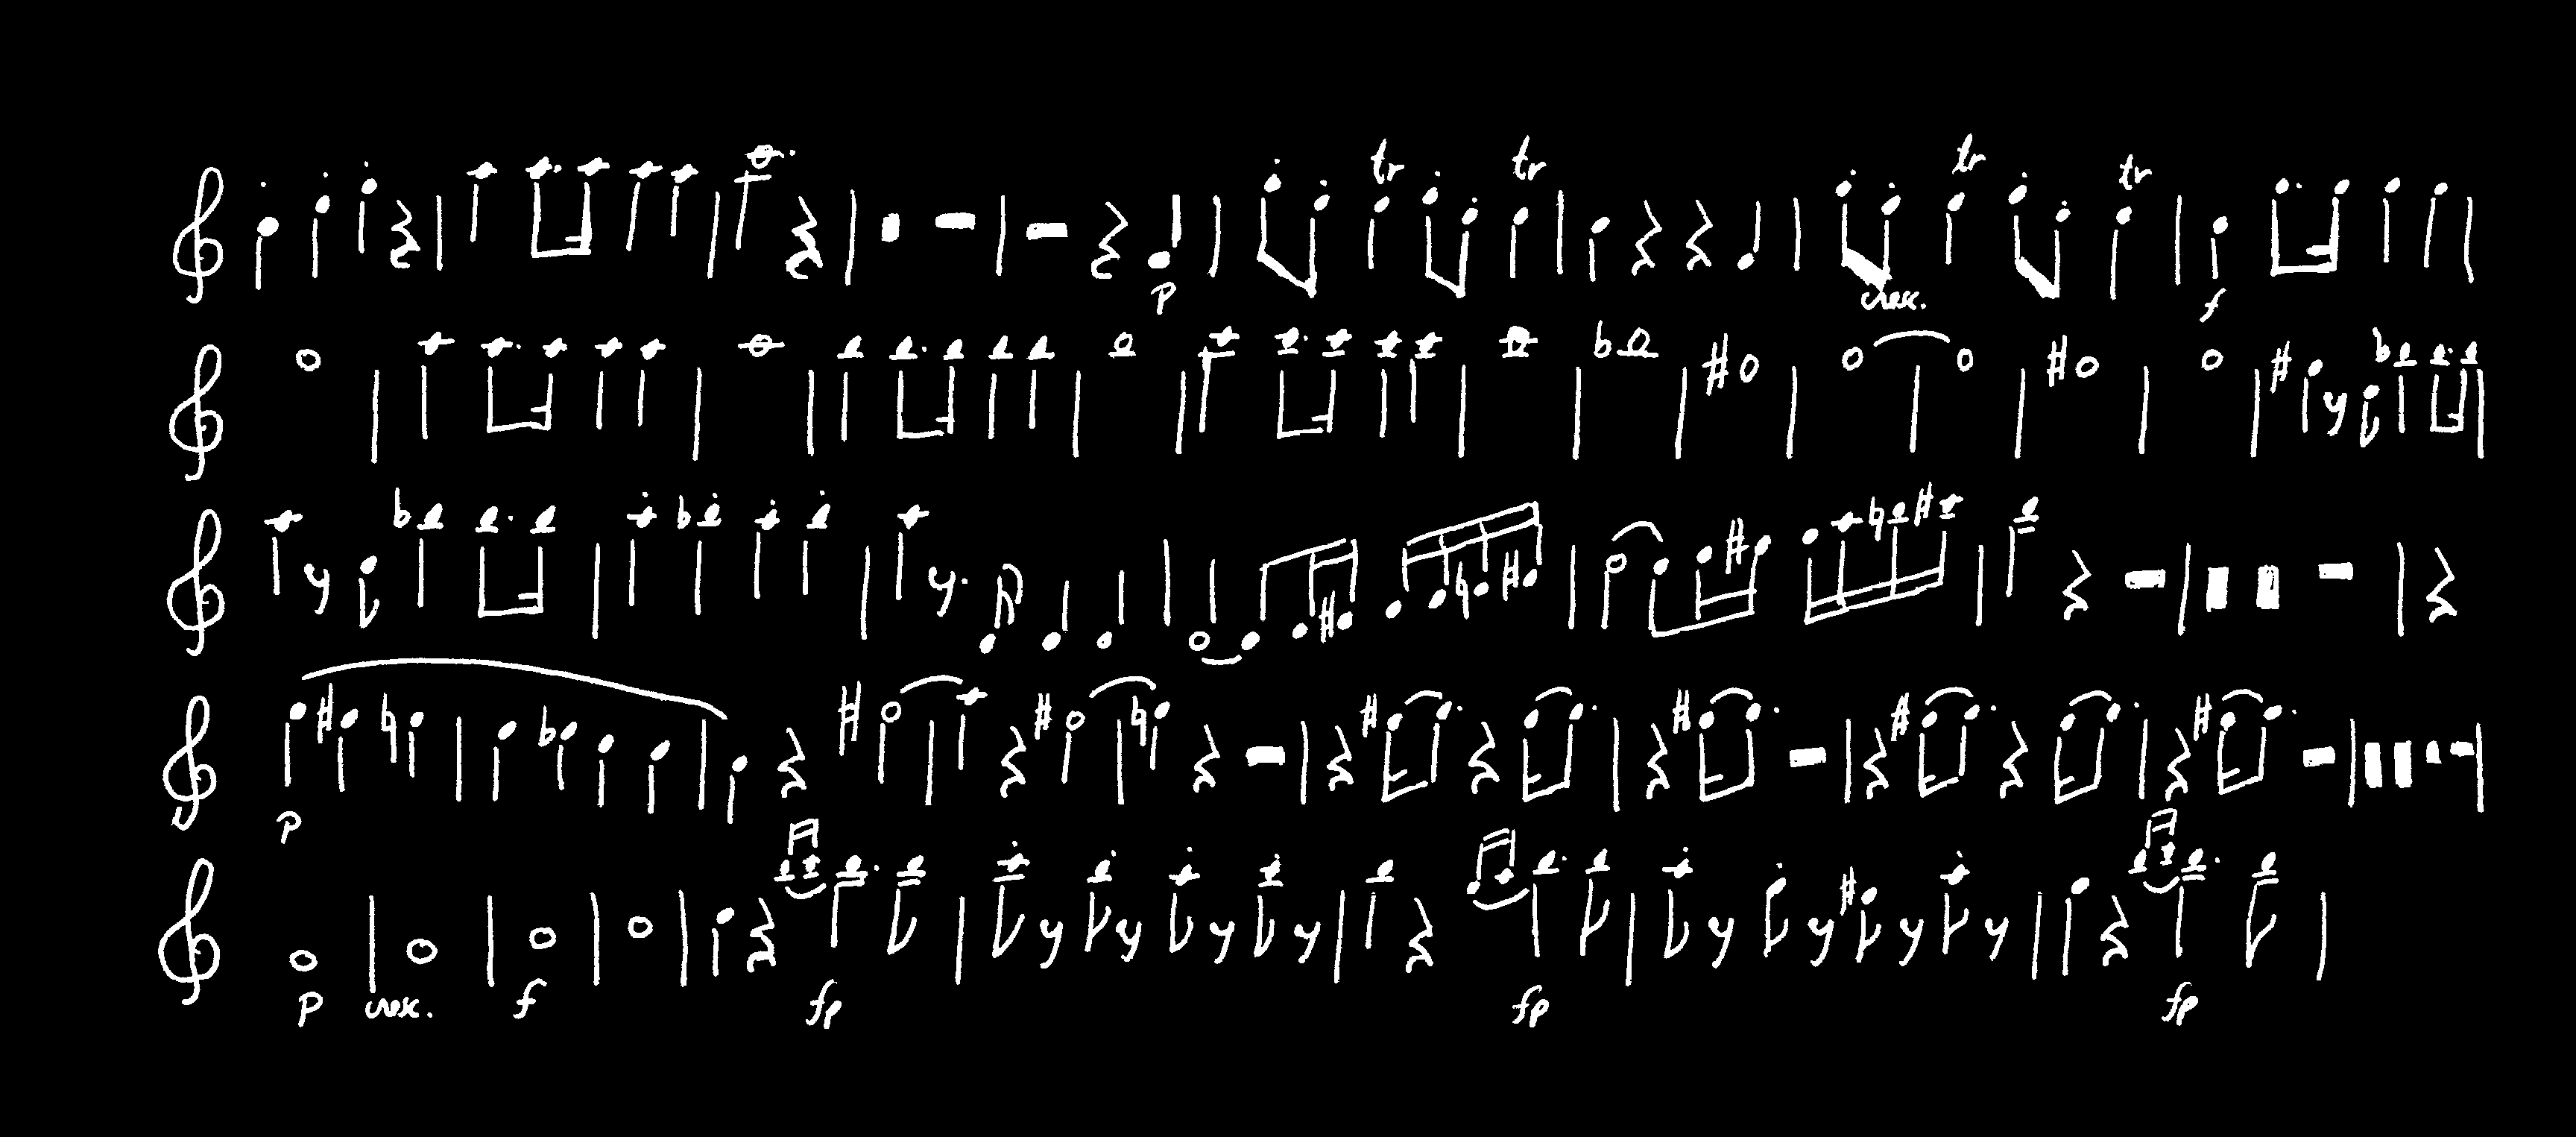 tr tr tr tr
p cresc. f
p
p cresc. f fp fp fp